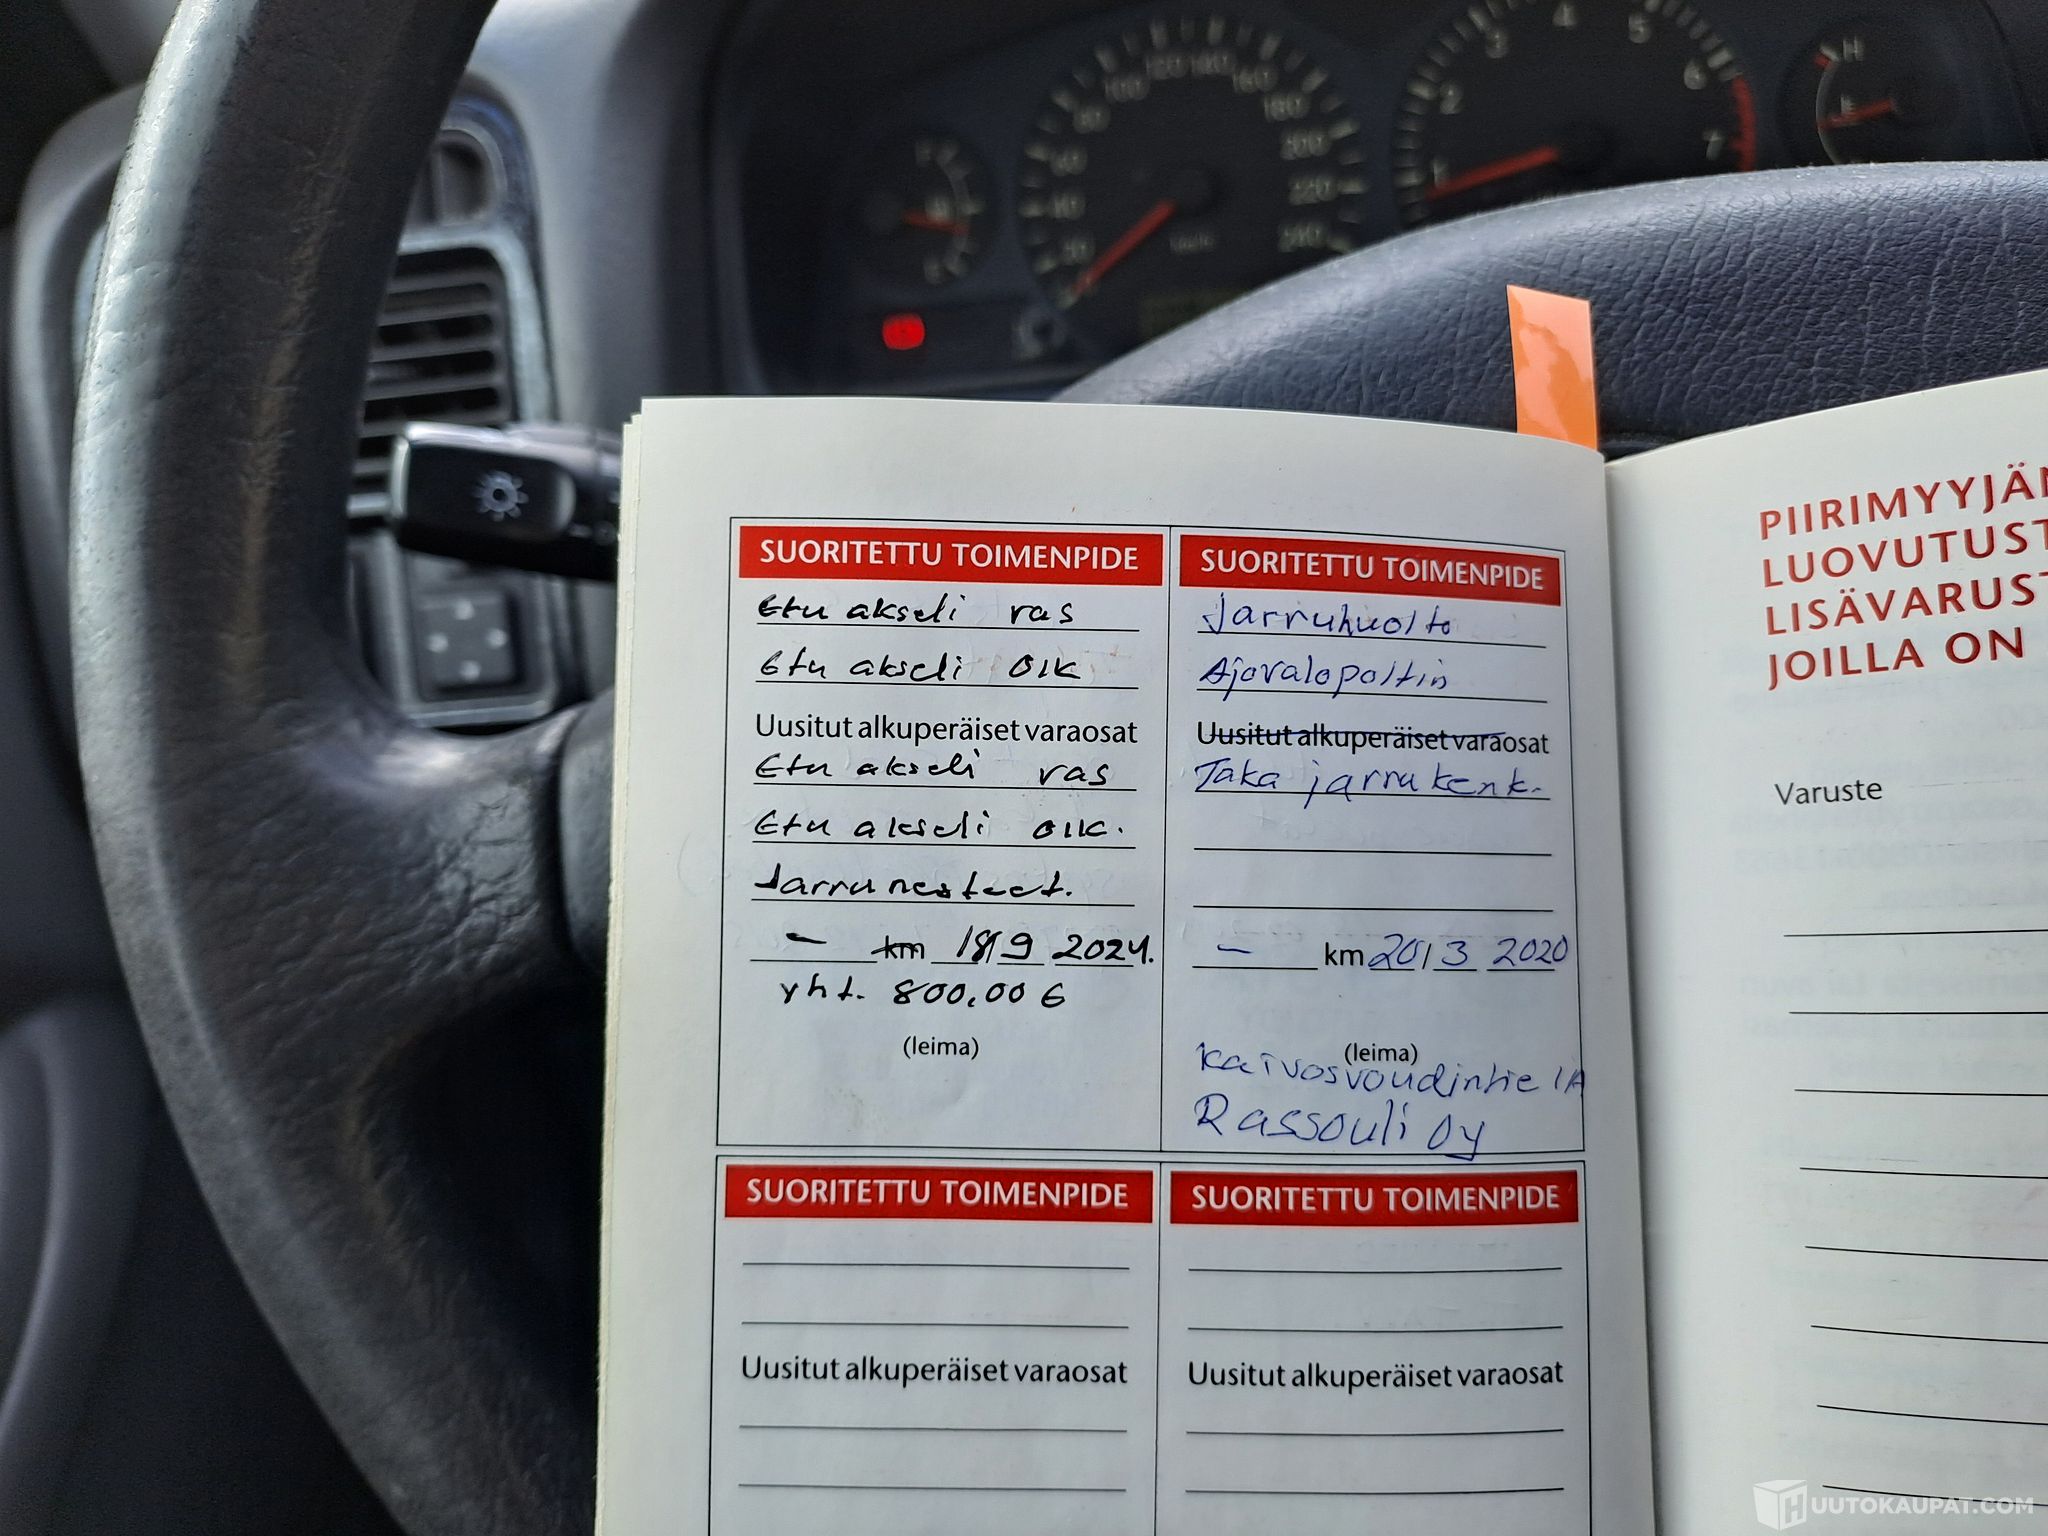 20
40
60
80
100
120
140
160
180
200
220
240
km/h
1
2
3
4
5
6
7
H
F
E
SUORITETTU TOIMENPIDE
Etu akseli ras
Etu akseli oik
Uusitut alkuperäiset varaosat
Etu akseli ras
Etu akseli oik.
Jarru nesteet.
– km 18/9 2024.
yht. 800,00 €
(leima)
SUORITETTU TOIMENPIDE
Jarruhuolto
Ajovalopoltin
Uusitut alkuperäiset varaosat
Taka jarru kenk.
– km 20/3 2020
(leima)
Kaivosvoudintie 1A
Rassouli Oy
SUORITETTU TOIMENPIDE
Uusitut alkuperäiset varaosat
SUORITETTU TOIMENPIDE
Uusitut alkuperäiset varaosat
PIIRIMYYJÄN
LUOVUTUST
LISÄVARUST
JOILLA ON
Varuste
HUUTOKAUPAT.COM